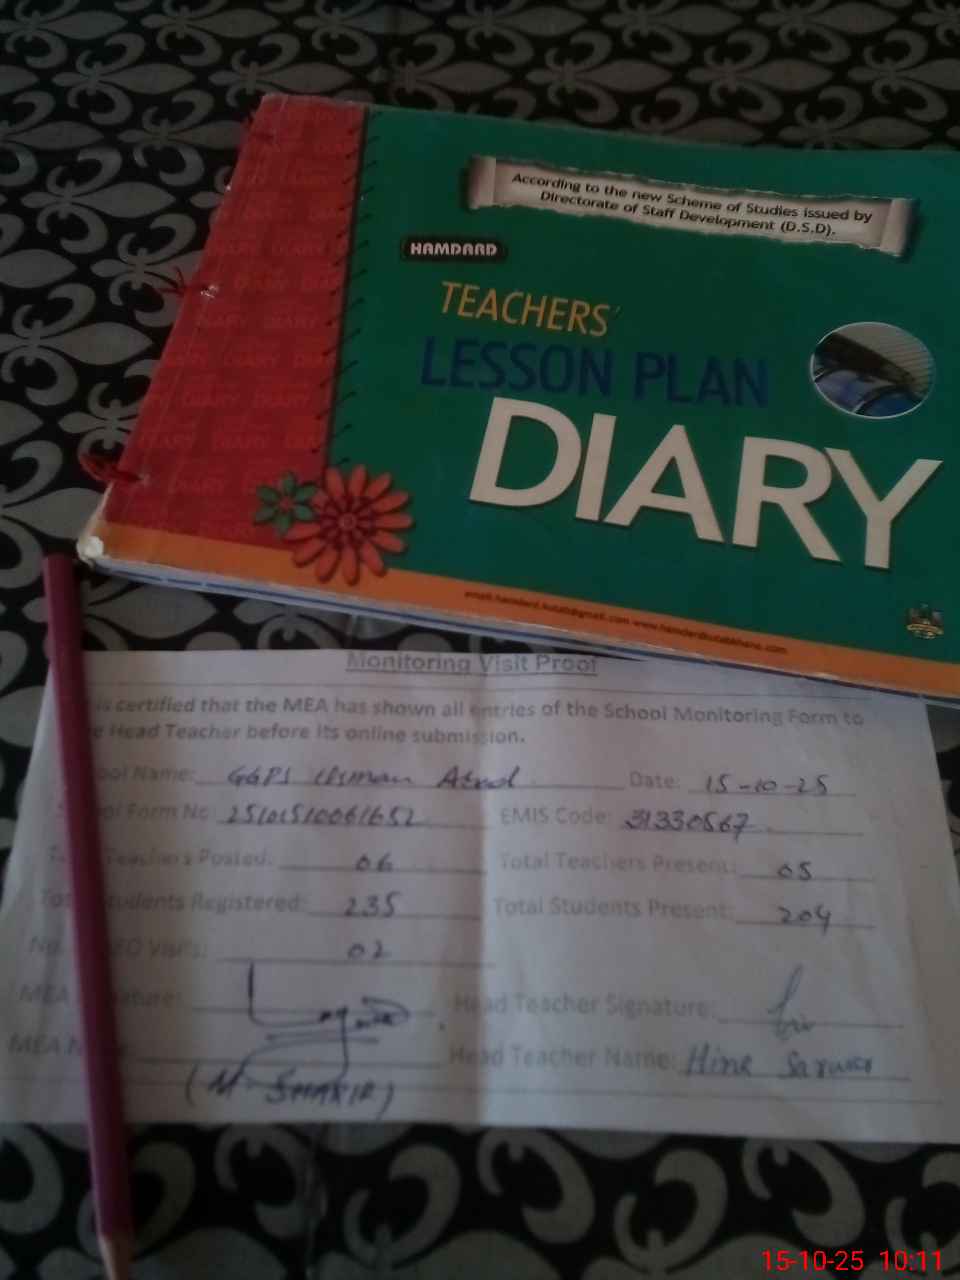 According to the new Scheme of Studies issued by
Directorate of Staff Development (D.S.D).
HAMDARD
TEACHERS'
LESSON PLAN
DIARY
email:hamdard.kutab@gmail.com www.hamdardkutabkhana.com
Monitoring Visit Proof
is certified that the MEA has shown all entries of the School Monitoring Form to
Head Teacher before its online submission.
Name: GGPS Usman Date: 15-10-25
Form No: EMIS Code: 31330567
Teachers Posted: 06 Total Teachers Present: 05
Students Registered: 235 Total Students Present: 204
Visits: 02
MEA Head Teacher Signature:
MEA Head Teacher Name: Hina Sarwar
(M. SHAKIR)
15-10-25 10:11